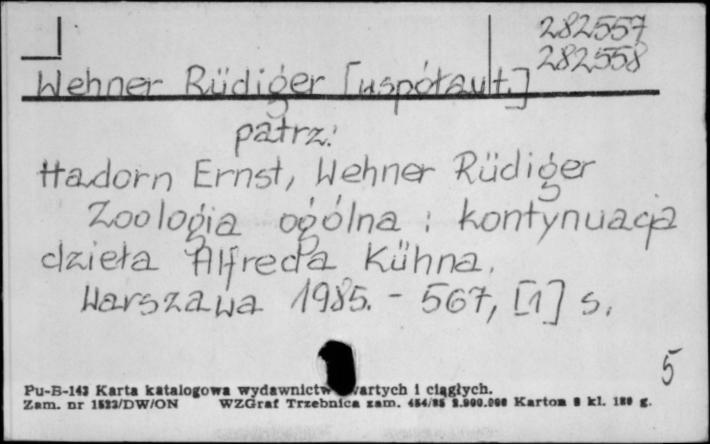 282557
282558
Wehner Rüdiger [współaut.]
patrz:
Hadorn Ernst, Wehner Rüdiger
Zoologia ogólna : kontynuacja
dzieła Alfreda Kühna.
Warszawa 1985. - 567, [1] s.
5
Pu-B-143 Karta katalogowa wydawnictw zwartych i ciągłych.
Zam. nr 1522/DW/ON WZGraf Trzebnica zam. 454/85 2.900.000 Karton kl. 180 g.